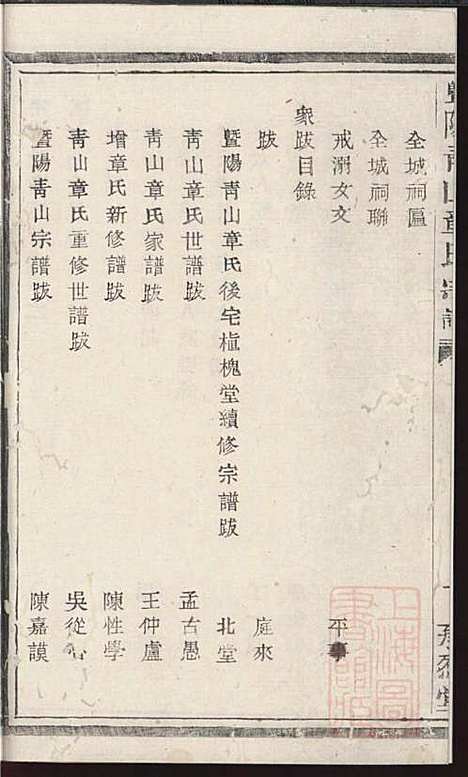 暨陽青山章氏宗譜
全城祠匾
全城祠聯
戒溺女文 平事
衆跋目錄
跋 庭來
暨陽青山章氏後宅植槐堂續修宗譜跋 北堂
青山章氏世譜跋 孟古愚
青山章氏家譜跋 王仲廬
增章氏新修譜跋 陳性學
青山章氏重修世譜跋 吳從
暨陽青山宗譜跋 陳嘉謨